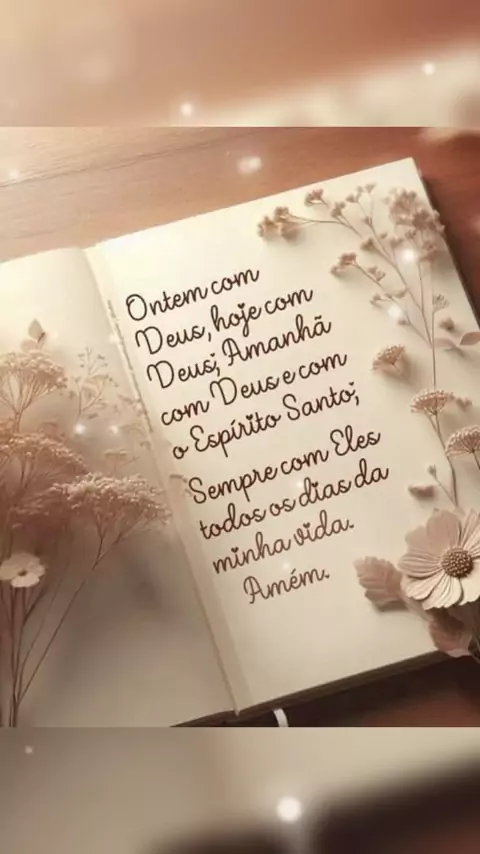 Ontem com
Deus, hoje com
Deus; Amanhã
com Deus e com
o Espírito Santo;
Sempre com Eles
todos os dias da
minha vida.
Amém.